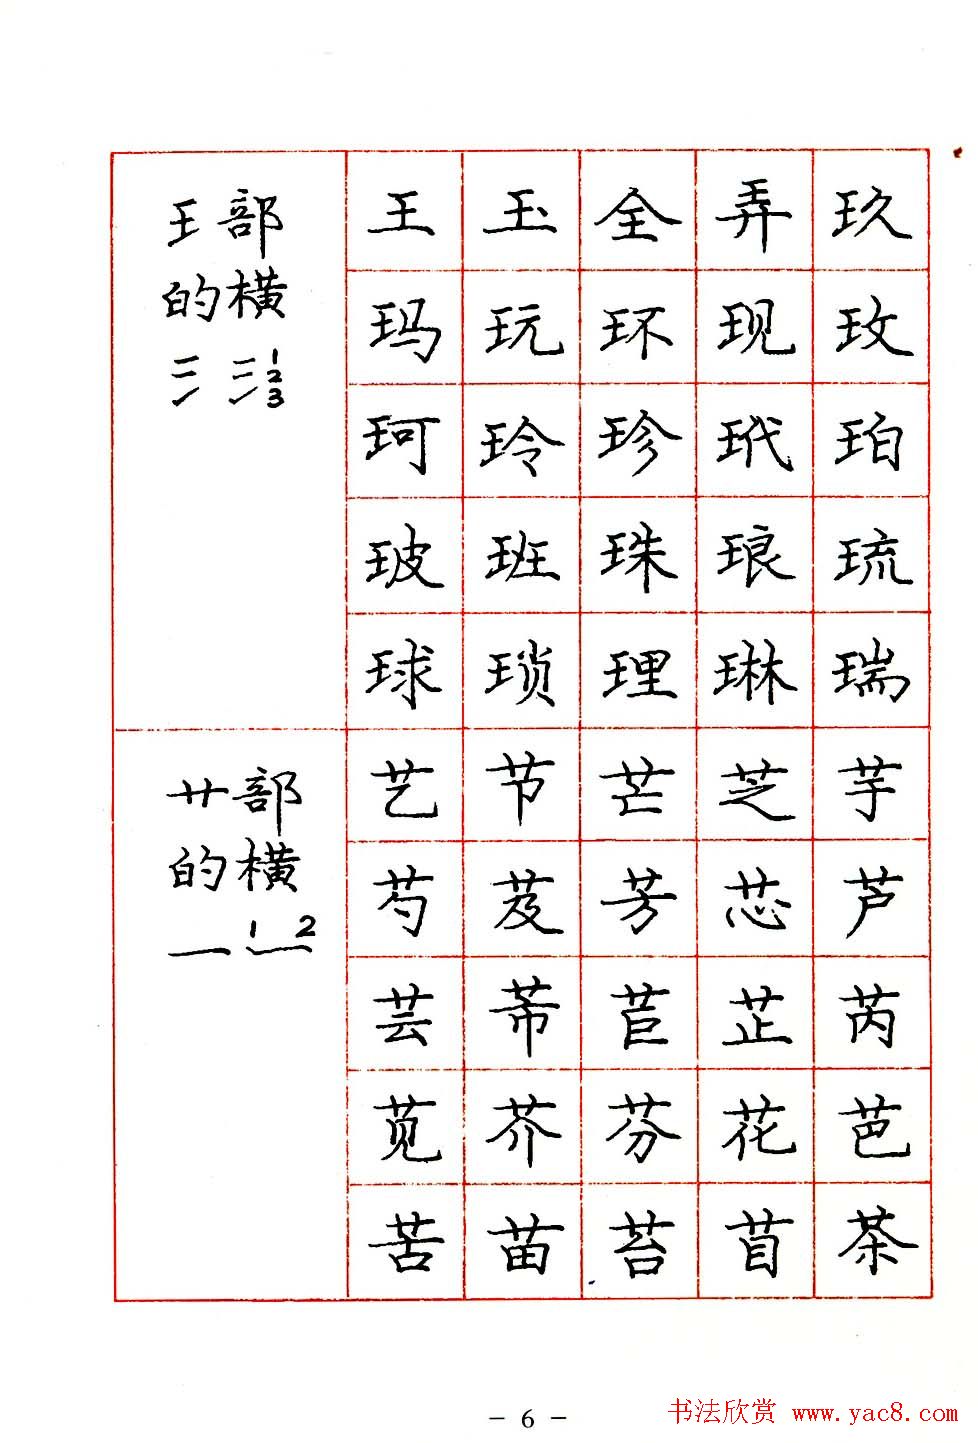 王部
的横
三 三 1
2
3
王 玉 全 弄 玖
玛 玩 环 现 玫
珂 玲 珍 玳 珀
玻 班 珠 琅 琉
球 琐 理 琳 瑞
艹部
的横
一 1 2
艺 节 芒 芝 芋
芍 芨 芳 芯 芦
芸 芾 苣 芷 芮
苋 芥 芬 花 芭
苦 苗 苔 苜 茶
- 6 -
书法欣赏 www.yac8.com